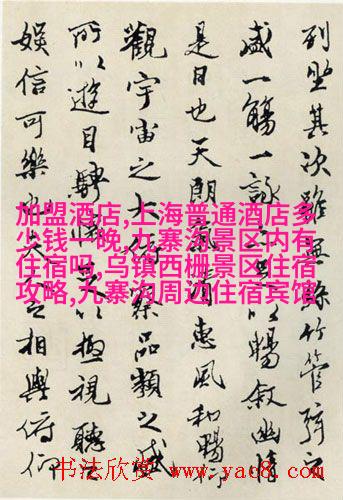 列坐其次雖無絲竹管弦之
盛一觴一詠以暢敘幽情
是日也天朗氣清惠風和暢仰
觀宇宙之大俯察品類之盛
所以遊目騁懷足以極視聽之
娛信可樂也夫人之相與俯仰
加盟酒店,上海普通酒店多
少钱一晚,九寨沟景区内有
住宿吗,乌镇西栅景区住宿
攻略,九寨沟周边住宿宾馆
书法欣赏 www.yac8.com